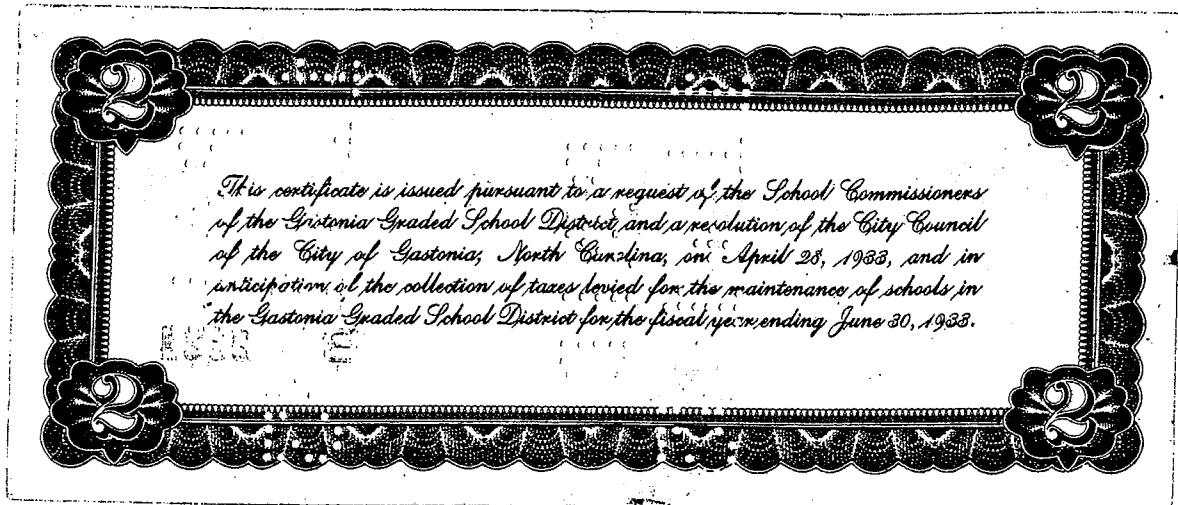 2 2
This certificate is issued pursuant to a request of the School Commissioners
of the Gastonia Graded School District, and a resolution of the City Council
of the City of Gastonia, North Carolina, on April 28, 1933, and in
anticipation of the collection of taxes levied for the maintenance of schools in
the Gastonia Graded School District for the fiscal year ending June 30, 1933.
2 2